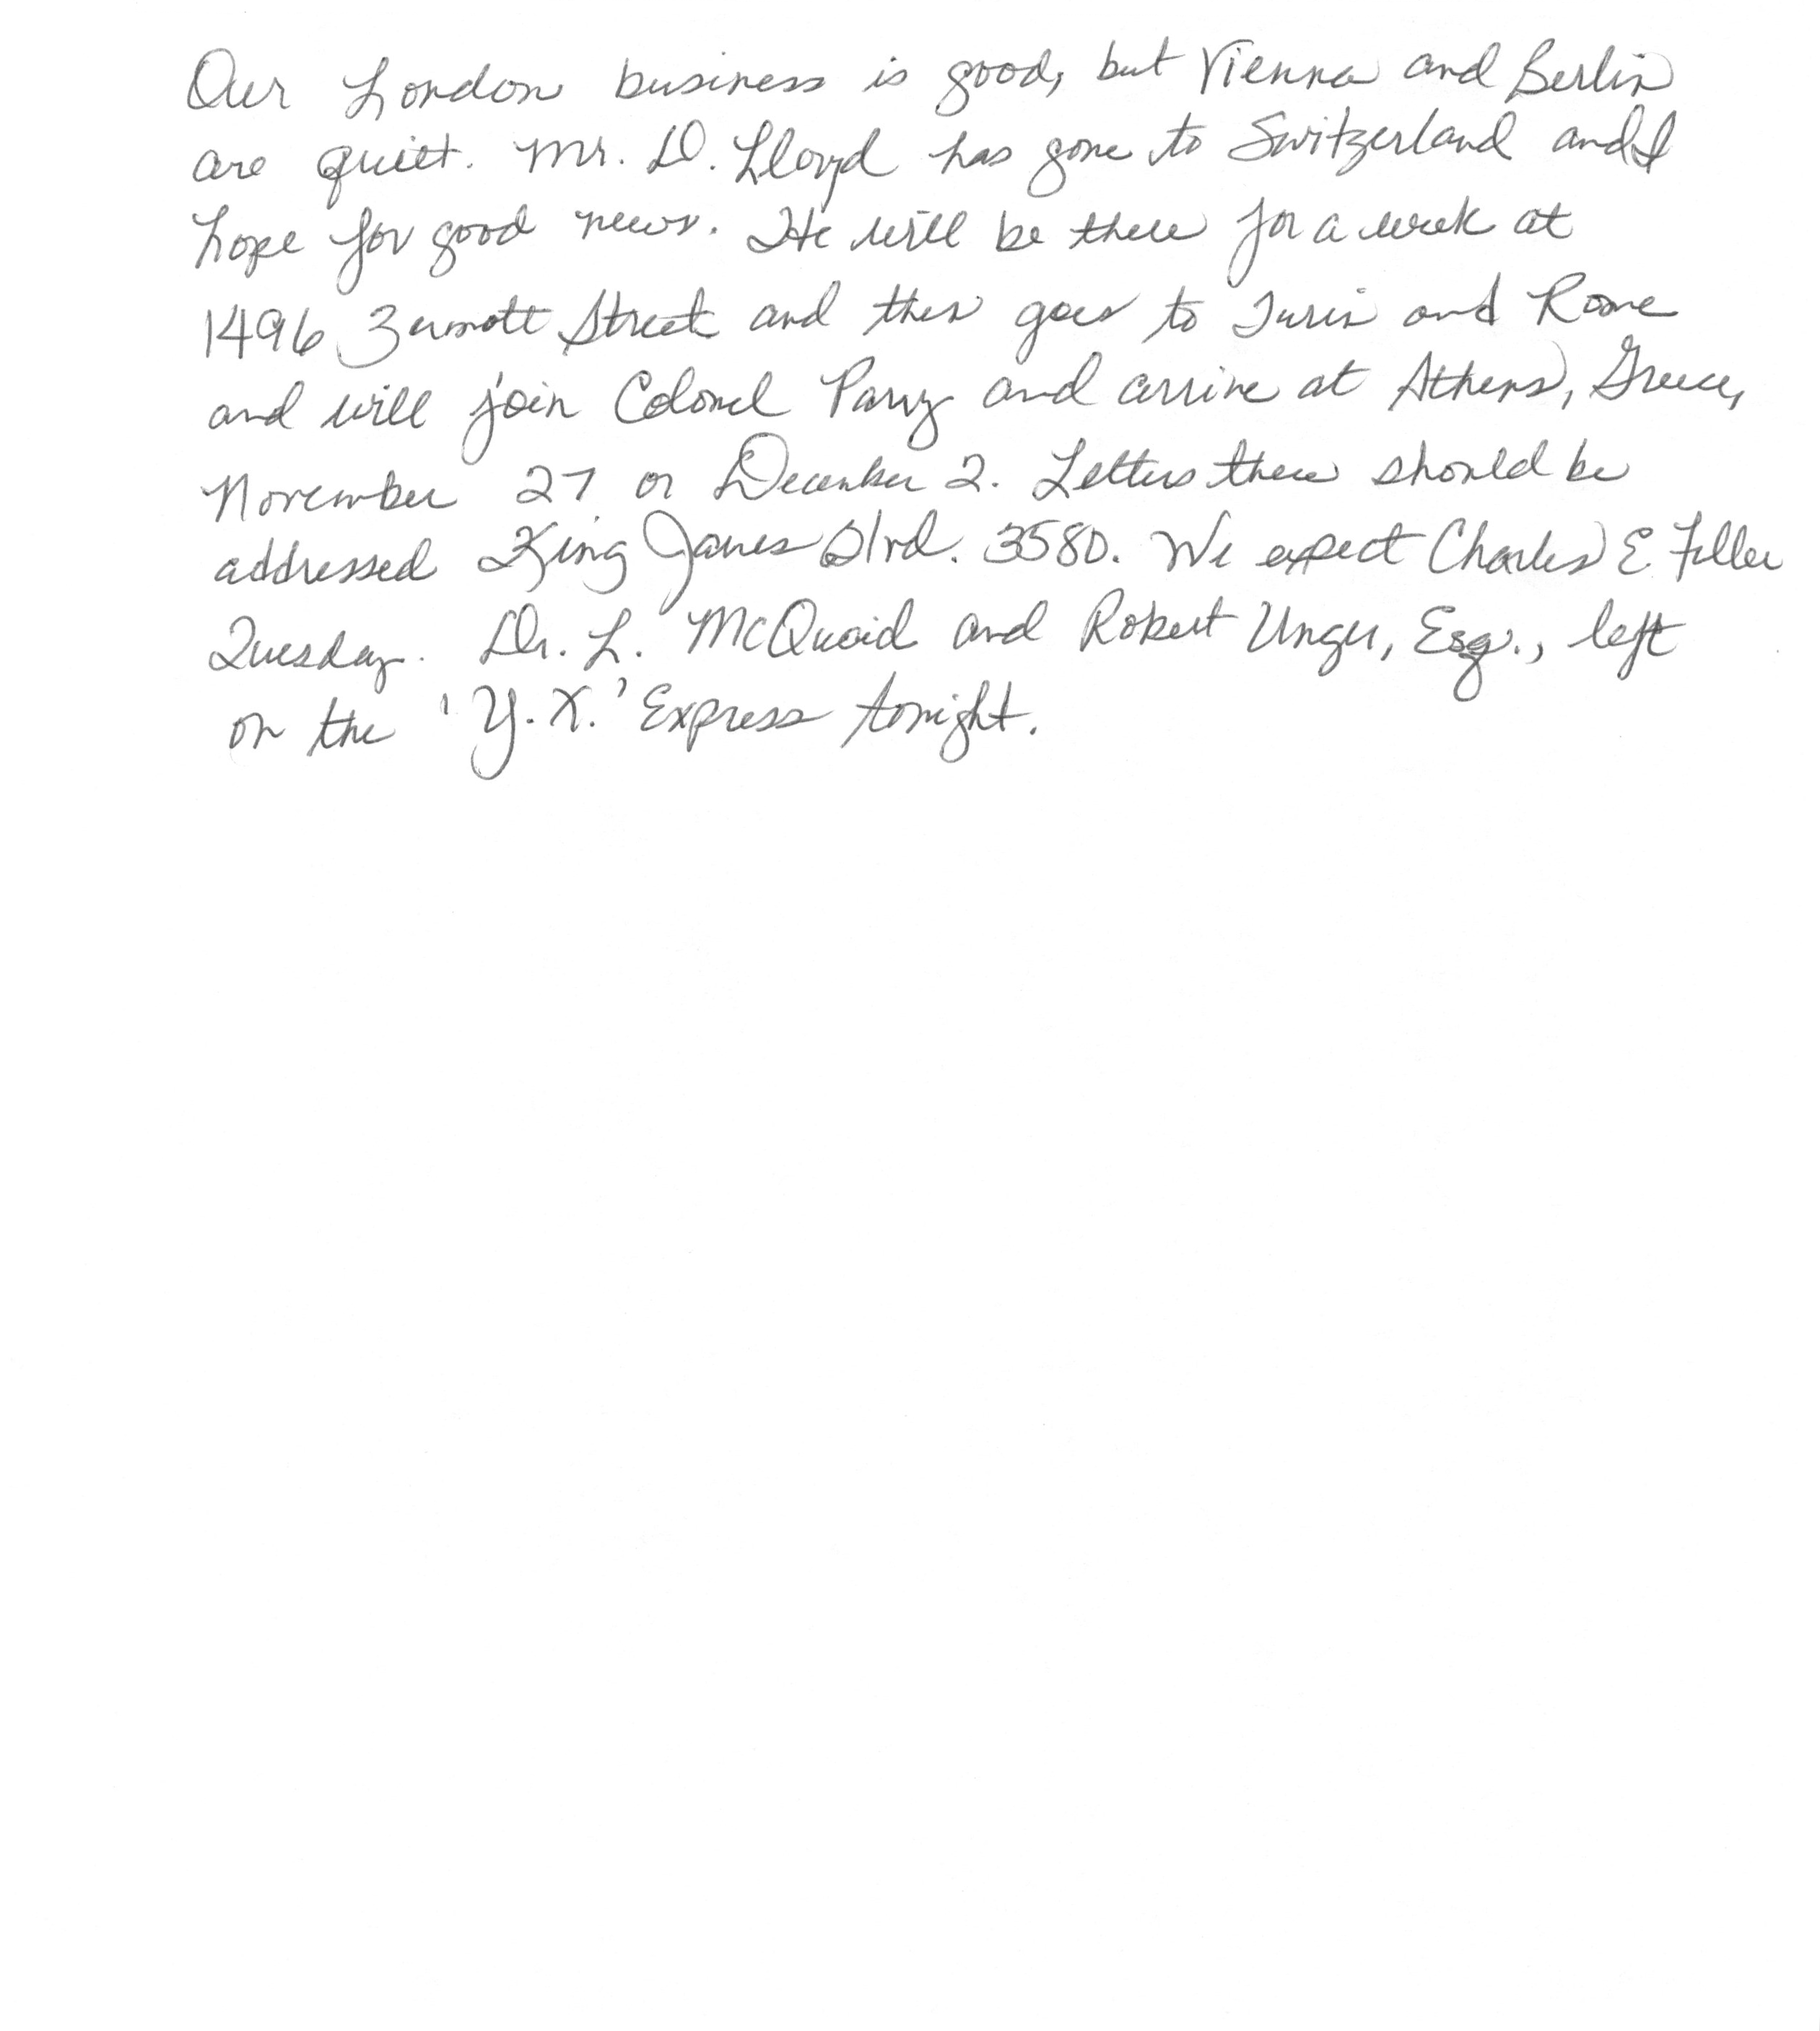 Our London business is good, but Vienna and Berlin
are quiet. Mr. D. Lloyd has gone to Switzerland and I
hope for good news. He will be there for a week at
1496 Zermott Street and then goes to Turin and Rome
and will join Colonel Parry and arrive at Athens, Greece,
November 27 or December 2. Letters there should be
addressed King James Blvd. 3580. We expect Charles E. Fuller
Tuesday. Dr. L. McQuaid and Robert Unger, Esq., left
on the 'Y.X.' Express tonight.